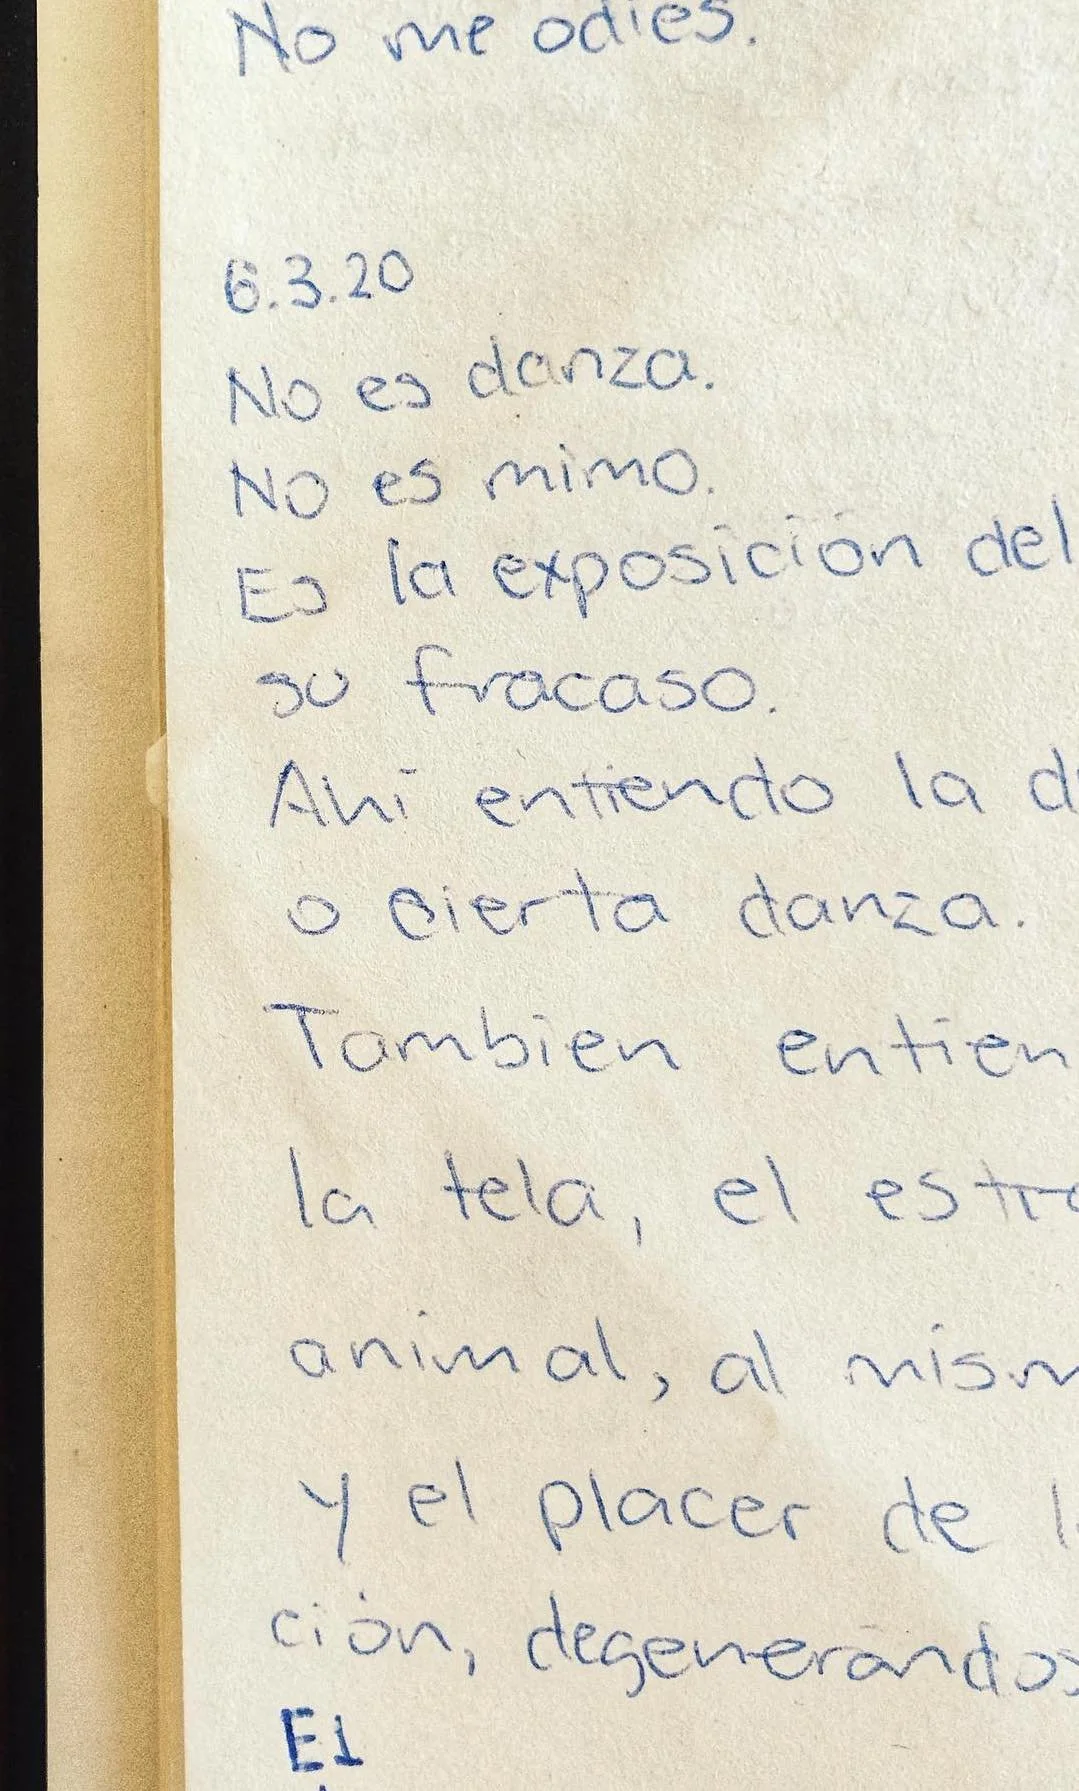 No me odies.
6.3.20
No es danza.
No es mimo.
Es la exposición del
su fracaso.
Ahí entiendo la d
o cierta danza.
Tambien entien
la tela, el estra
animal, al mism
y el placer de l
ción, degenerándos
El